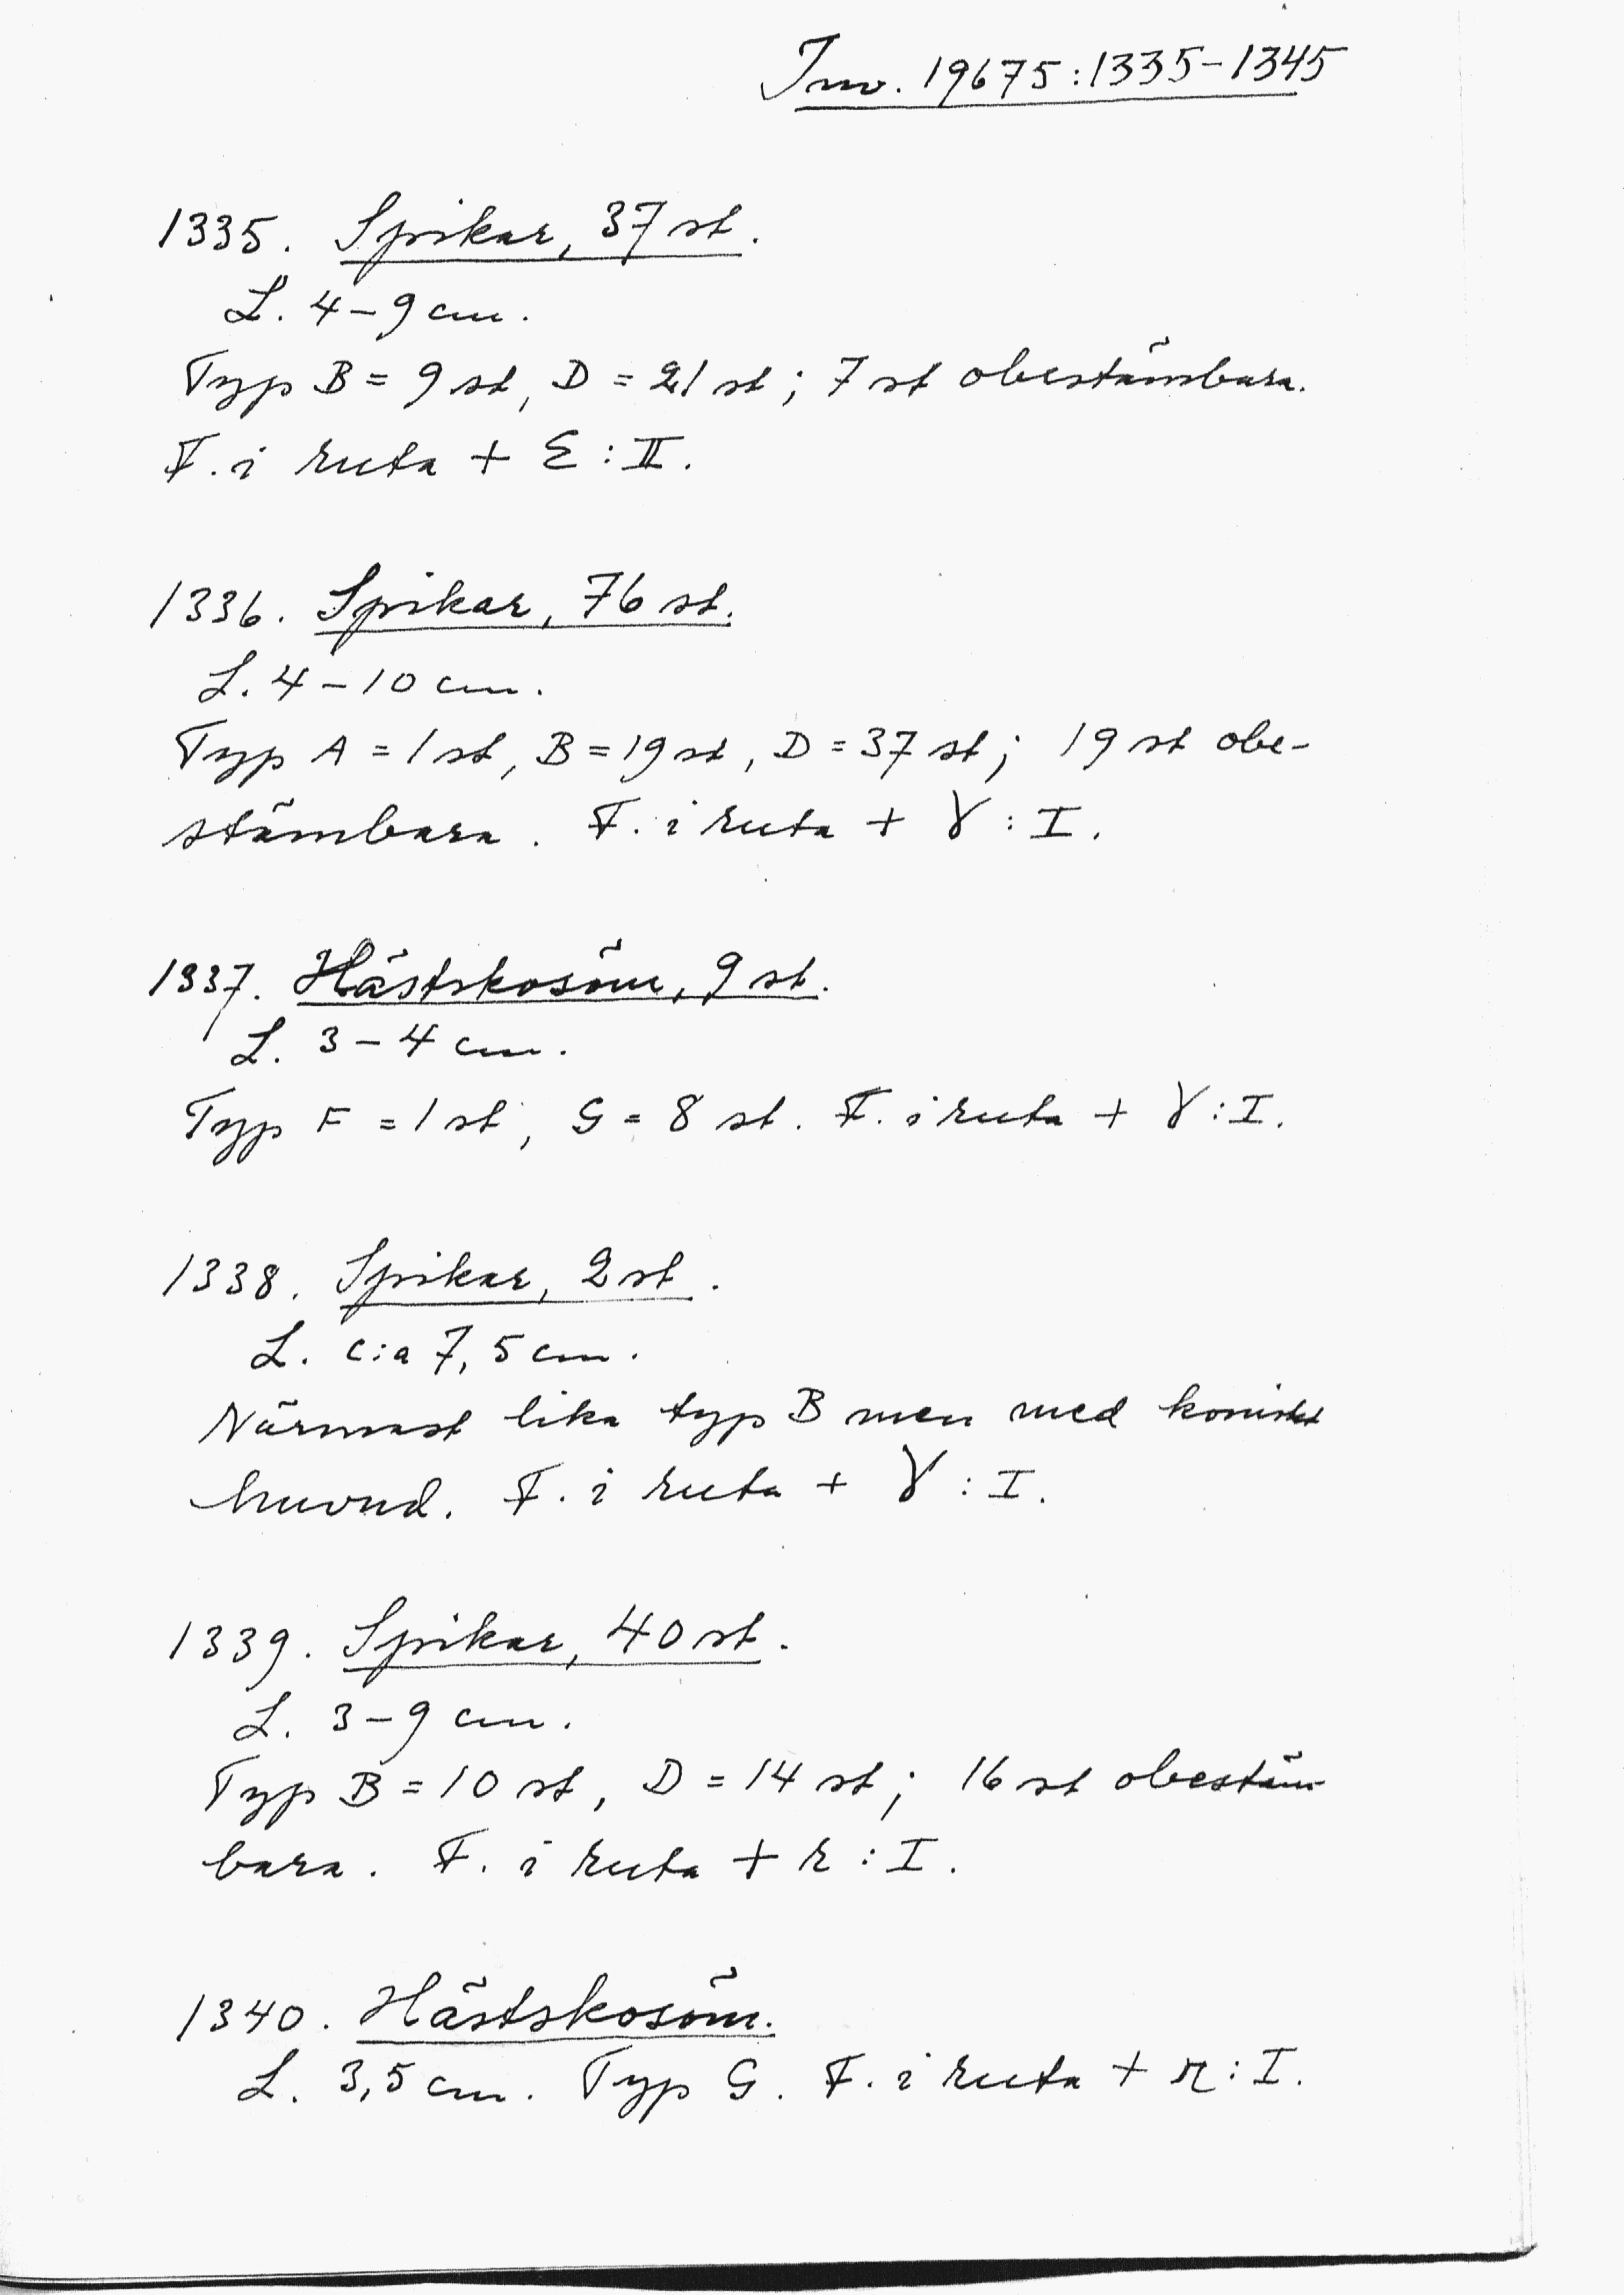 Inv. 19675:1335-1345
1335. Spikar, 37 st.
L. 4-9 cm.
Typ B = 9 st, D = 21 st; 7 st obestämbara.
F. i ruta + E : II.
1336. Spikar, 76 st.
L. 4-10 cm.
Typ A = 1 st, B = 19 st, D = 37 st; 19 st obe-
stämbara. F. i ruta + Y : I.
1337. Hästskosöm, 9 st.
L. 3-4 cm.
Typ F = 1 st, G = 8 st. F. i ruta + Y : I.
1338. Spikar, 2 st.
L. c:a 7,5 cm.
Närmast lika typ B men med koniskt
huvud. F. i ruta + Y : I.
1339. Spikar, 40 st.
L. 3-9 cm.
Typ B = 10 st, D = 14 st; 16 st obestäm
bara. F. i ruta + r : I.
1340. Hästskosöm.
L. 3,5 cm. Typ G. F. i ruta + r : I.